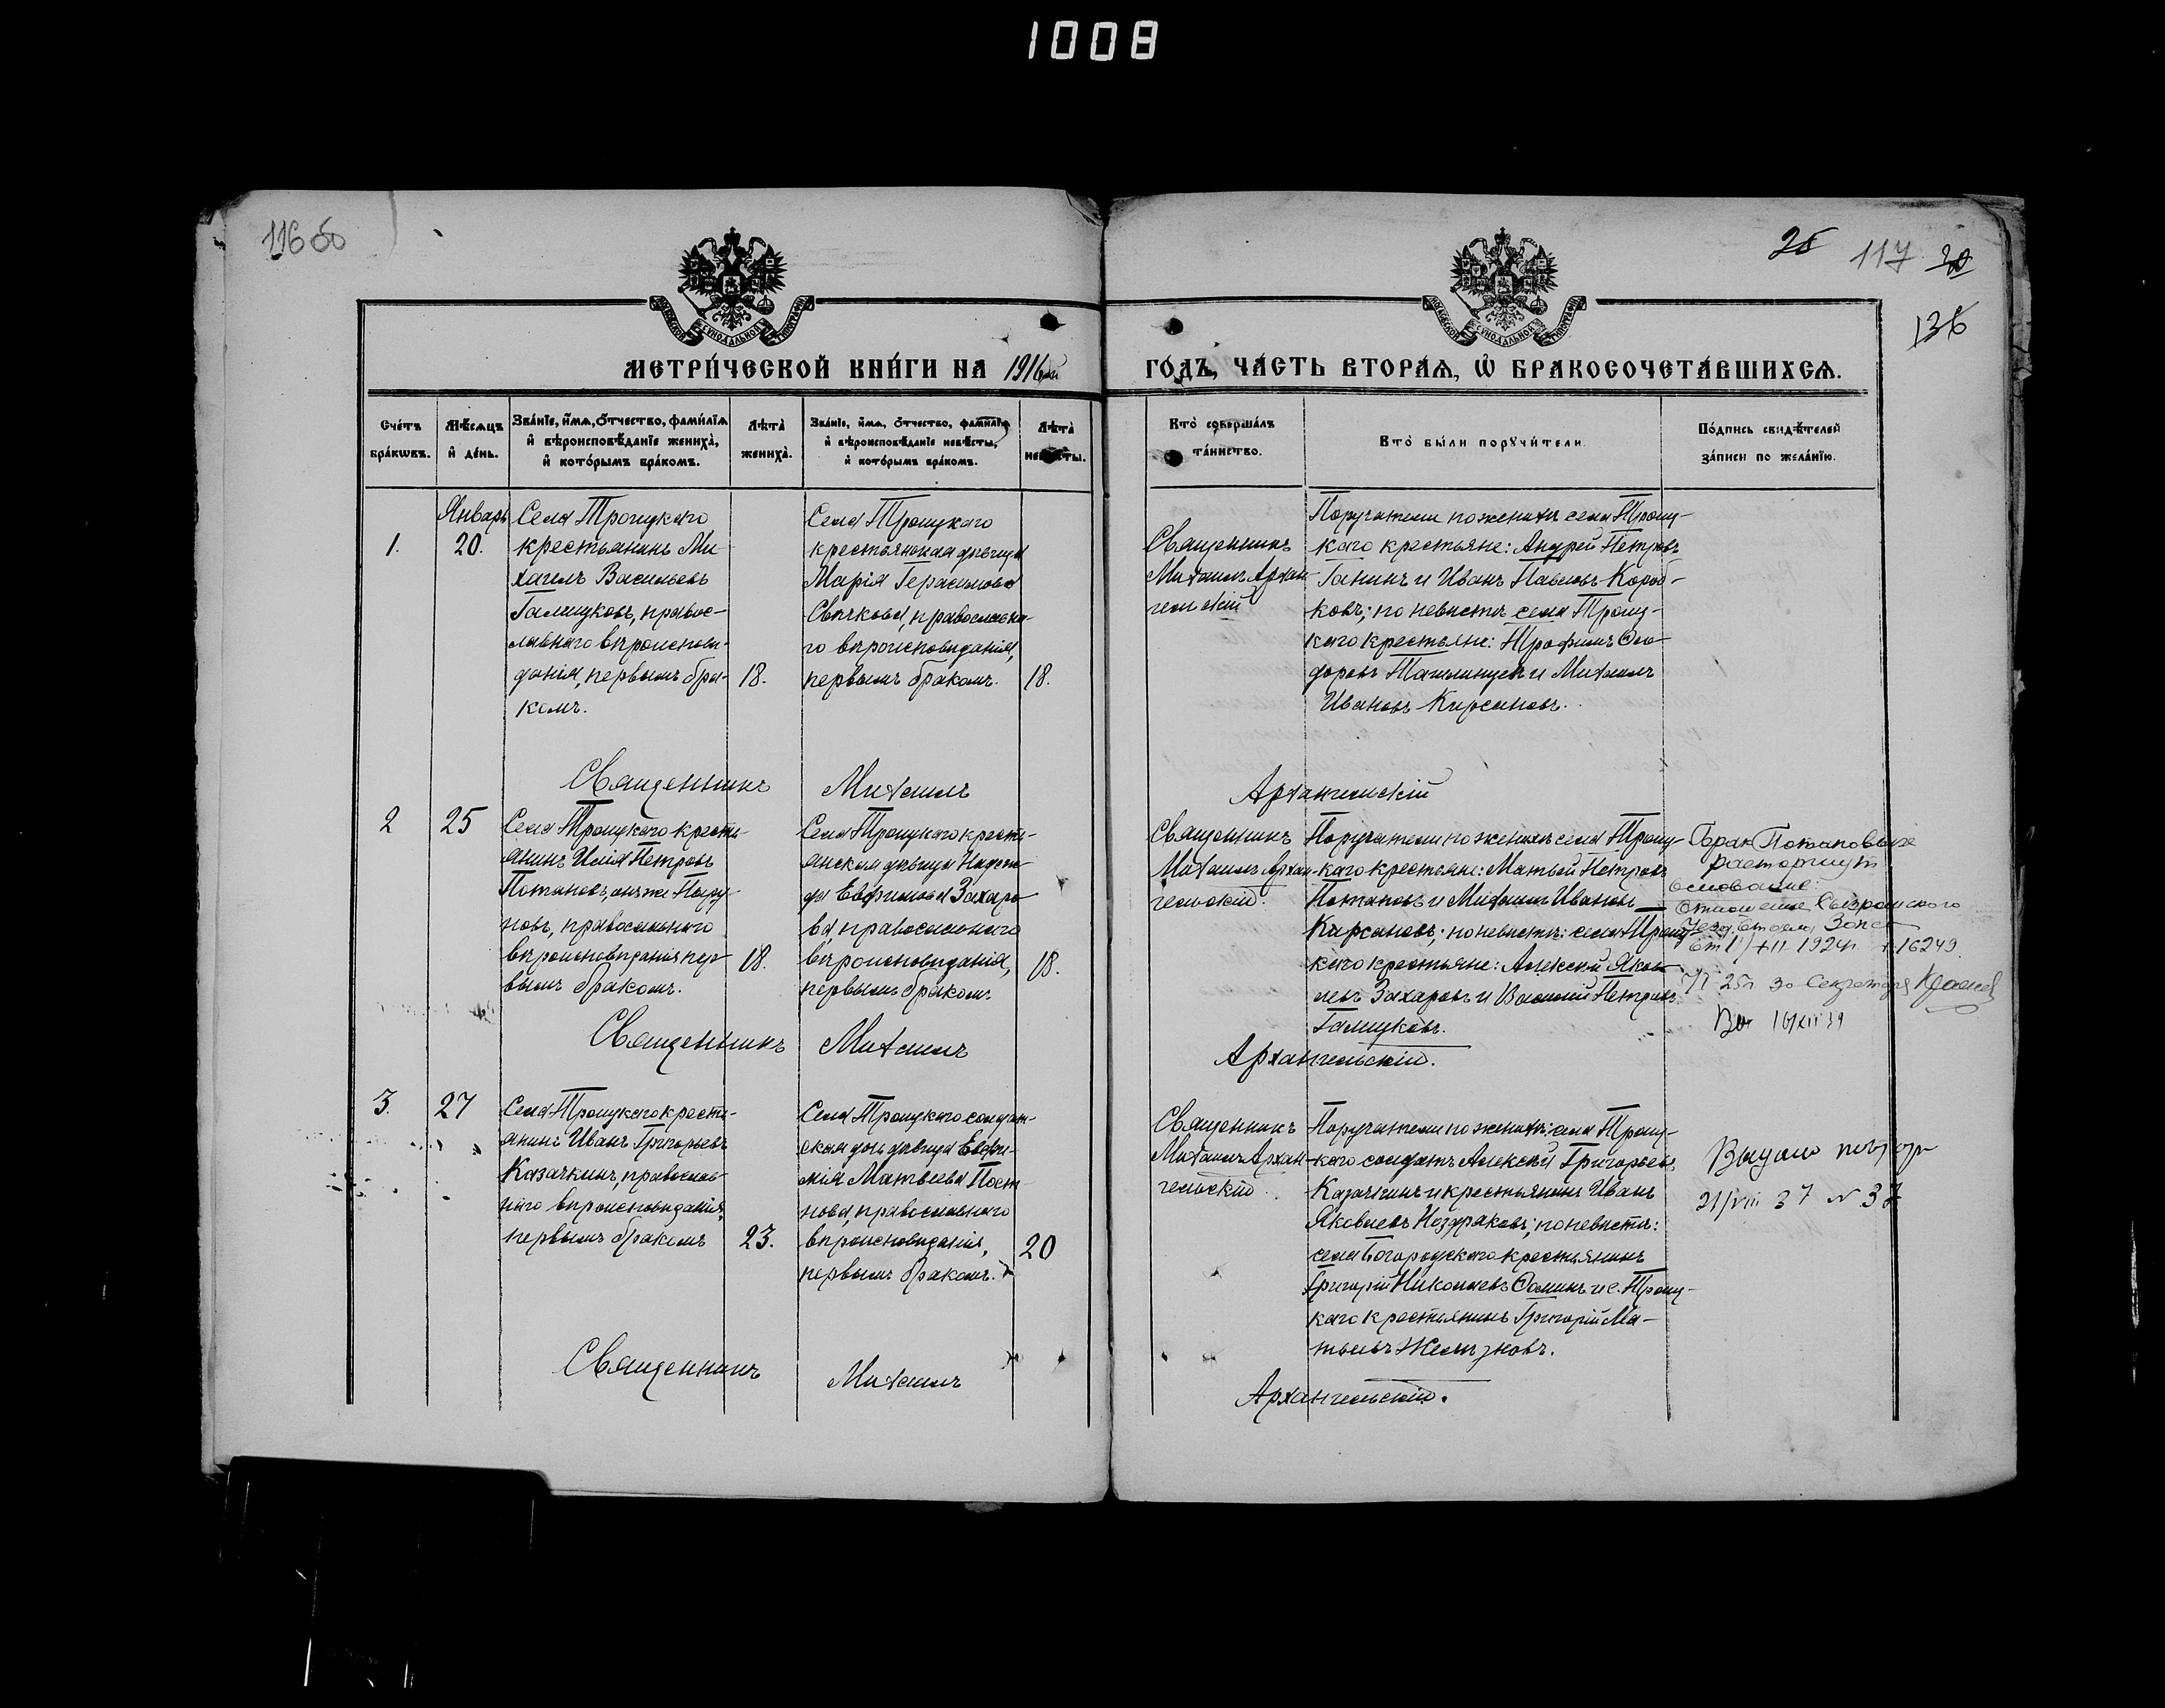 1008
116 об
25 117 30
136
МЕТРИ́ЧЕСКОЙ КНИ́ГИ НА 1916ый ГО́ДЪ, ЧА́СТЬ ВТОРА́Я, Ѡ БРАКОСОЧЕТА́ВШИХСЯ.
Сче́тъ бра́кѡвъ.
Мѣ́сяцъ и҆ де́нь.
Зва́нїе, и҆́мѧ, ѻ҆́тчество, фами́лїѧ
и҆ вѣроисповѣ́данїе жениха̀,
и҆ кото́рымъ бра́комъ.
Лѣ́та жениха̀.
Зва́нїе, и҆́мѧ, ѻ҆́тчество, фами́лїѧ
и҆ вѣроисповѣ́данїе невѣ́сты,
и҆ кото́рымъ бра́комъ.
Лѣ́та невѣ́сты.
Кто̀ соверша́лъ
та́инство.
Кто̀ бы́ли порꙋчи́тели.
По́дпись свидѣ́телей
за́писи по жела́нїю.
1.
Январь
20.
Села Троицкаго
крестьянинъ Ми-
хаилъ Васильевъ
Галицковъ, правос-
лавнаго вѣроисповѣ-
данія, первымъ бра-
комъ.
18.
Села Троицкаго
крестьянская дѣвица
Марія Герасимова
Свѣчкова, православна-
го вѣроисповѣданія,
первымъ бракомъ.
18.
Священникъ
Михаилъ Архан-
гельскій
Поручители по женихѣ села Троиц-
каго крестьяне: Андрей Петровъ
Ганинъ и Иванъ Павловъ Короб-
ковъ; по невѣстѣ села Троиц-
каго крестьяне: Трофимъ Ѳео-
доровъ Ташлинцевъ и Михаилъ
Ивановъ Кирсановъ.
Священникъ Михаилъ Архангельскій
2
25
Села Троицкаго кресть-
янинъ Илія Петровъ
Потаповъ, онъ же
новъ, православнаго
вѣроисповѣданія пер-
вымъ бракомъ.
18.
Села Троицкаго кресть-
янская дѣвица Надеж-
да Евфимова Захаро-
ва, православнаго
вѣроисповѣданія,
первымъ бракомъ
18.
Священникъ
Михаилъ Архан-
гельскій.
Поручители по женихѣ села Троиц-
каго крестьяне: Матвей Петровъ
Потаповъ и Михаилъ Ивановъ
Кирсановъ; по невѣстѣ: села Троиц-
каго крестьяне: Алексей Яков-
левъ Захаровъ и Василий Петровъ
Галицковъ.
Брак Потаповых
расторгнут
основание:
Отношение Сызранского
1924г. 16249
Секретаря
Священникъ Михаилъ Архангельскій.
3.
27
Села Троицкаго кресть-
янинъ Иванъ Григорьевъ
Казачкинъ, православ-
наго вѣроисповѣданія,
первымъ бракомъ
23.
Села Троицкаго солдат-
ская дочь дѣвица Евфи-
мія Матвеева Пост-
нова, православнаго
вѣроисповѣданія,
первымъ бракомъ.
20
Священникъ
Михаилъ Архан-
гельскій.
Поручители по женихѣ: села Троиц-
каго солдатъ Алексѣй Григорьевъ
Казачкинъ и крестьянинъ Иванъ
Яковлевъ Ноздраковъ; по невѣстѣ:
села Богородскаго крестьянинъ
Григорій Николаевъ Ѳоминъ и с. Троиц-
каго крестьянинъ Григорій Ма-
твѣевъ Желѣзновъ.
Выдано повтор
21/VIII 37 N 37
Священникъ Михаилъ Архангельскій.